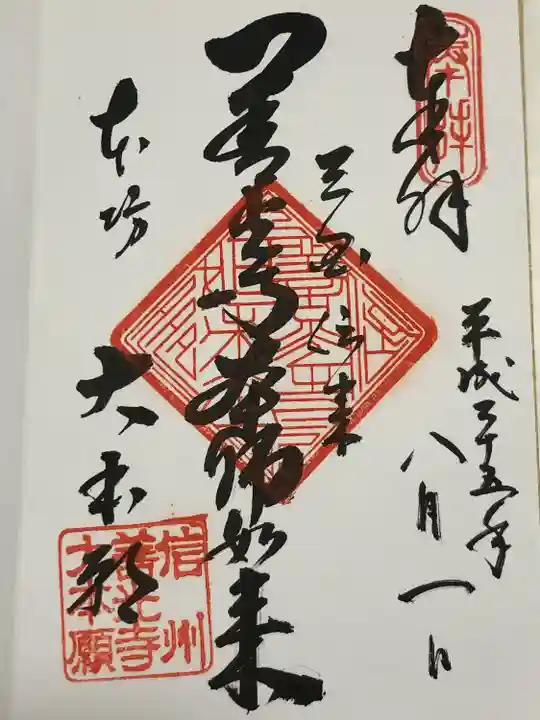 奉拝
奉拝
平成二十五年
八月一日
三国伝来
善光寺本師如来
本坊
大本願
信州
善光寺
大本願